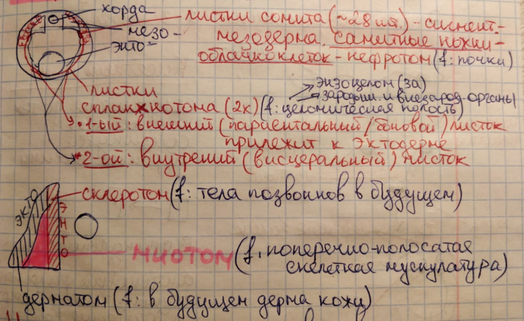 хорда
мезо-
энто-
листки сомита (~28 шт.) - сигмент.
мезодерма, самитные ножки -
облако клеток - нефротом (f: почки)
листки
спланхнотома (2х) (f: целомическая полость)
экзоцелом (за)
1-ый: внешний (париентальный/боковой) листок
прилежит к эктодерме
2-ой: внутрений (висцеральный) листок
склеротом (f: тела позвонков в будущем)
экто
энто
миотом (f. поперечно-полосатая
скелетная мускулатура)
дерматом (f: в будущем дерма кожи)